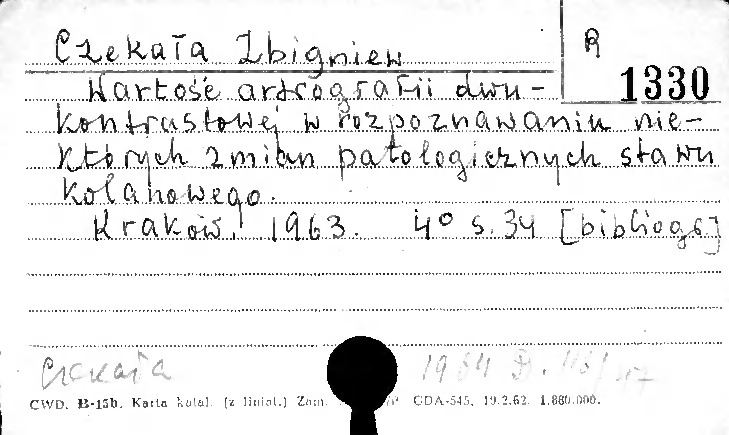 Czekała Zbigniew
R
1330
Wartość artrografii dwu-
kontrastowej w rozpoznawaniu nie-
których zmian patologicznych stawu
kolanowego.
Kraków, 1963. 4° s. 34 [bibliogr]
Czekała 1964 D.
CWD. B-15b. Karta katal. (z liniat.) Zam. CDA-545. 19.2.62. 1.860.000.